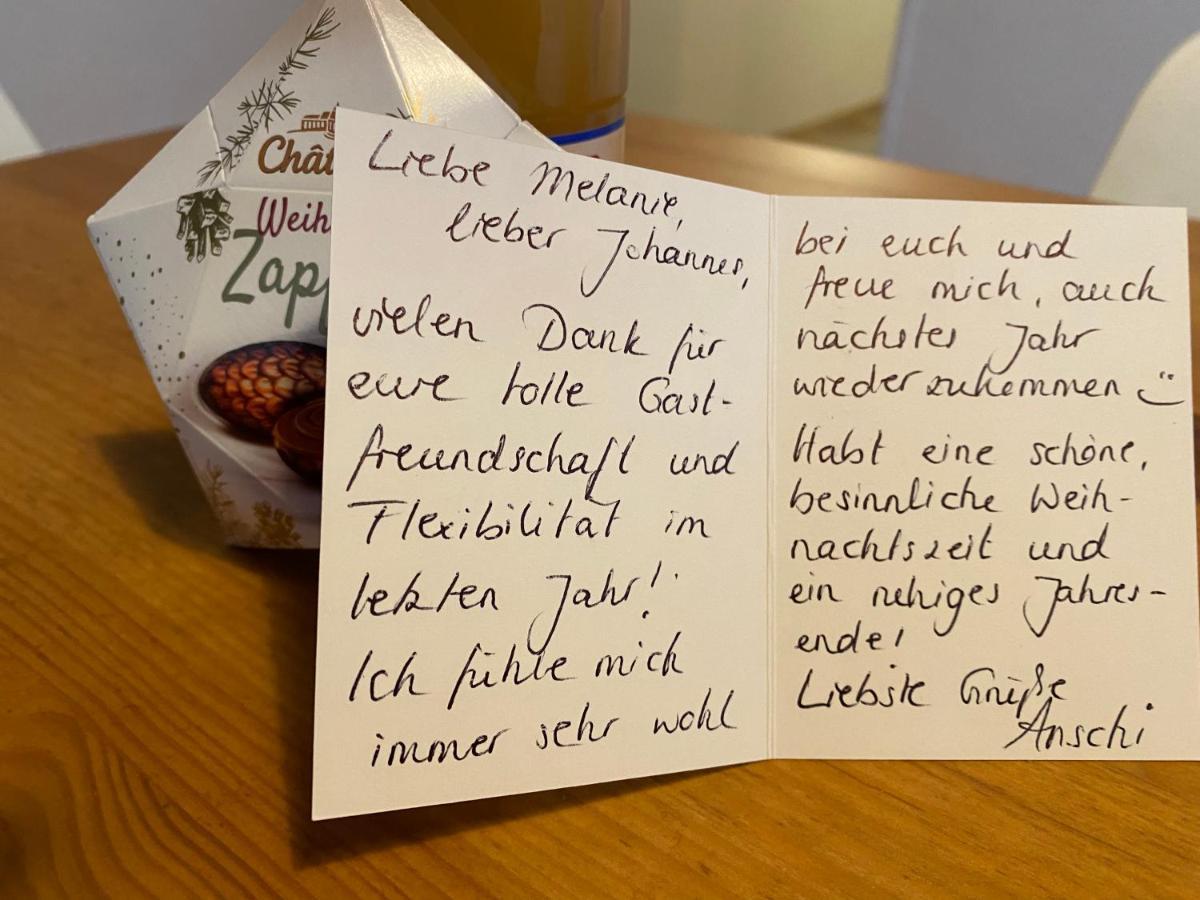 Chât
Weih
Zapf
Liebe Melanie,
lieber Johannes,
vielen Dank für
eure tolle Gast-
freundschaft und
Flexibilität im
letzten Jahr!
Ich fühle mich
immer sehr wohl
bei euch und
freue mich, auch
nächstes Jahr
wiederzukommen ¨)
Habt eine schöne,
besinnliche Weih-
nachtszeit und
ein ruhiges Jahres-
ende!
Liebste Grüße
Anschi